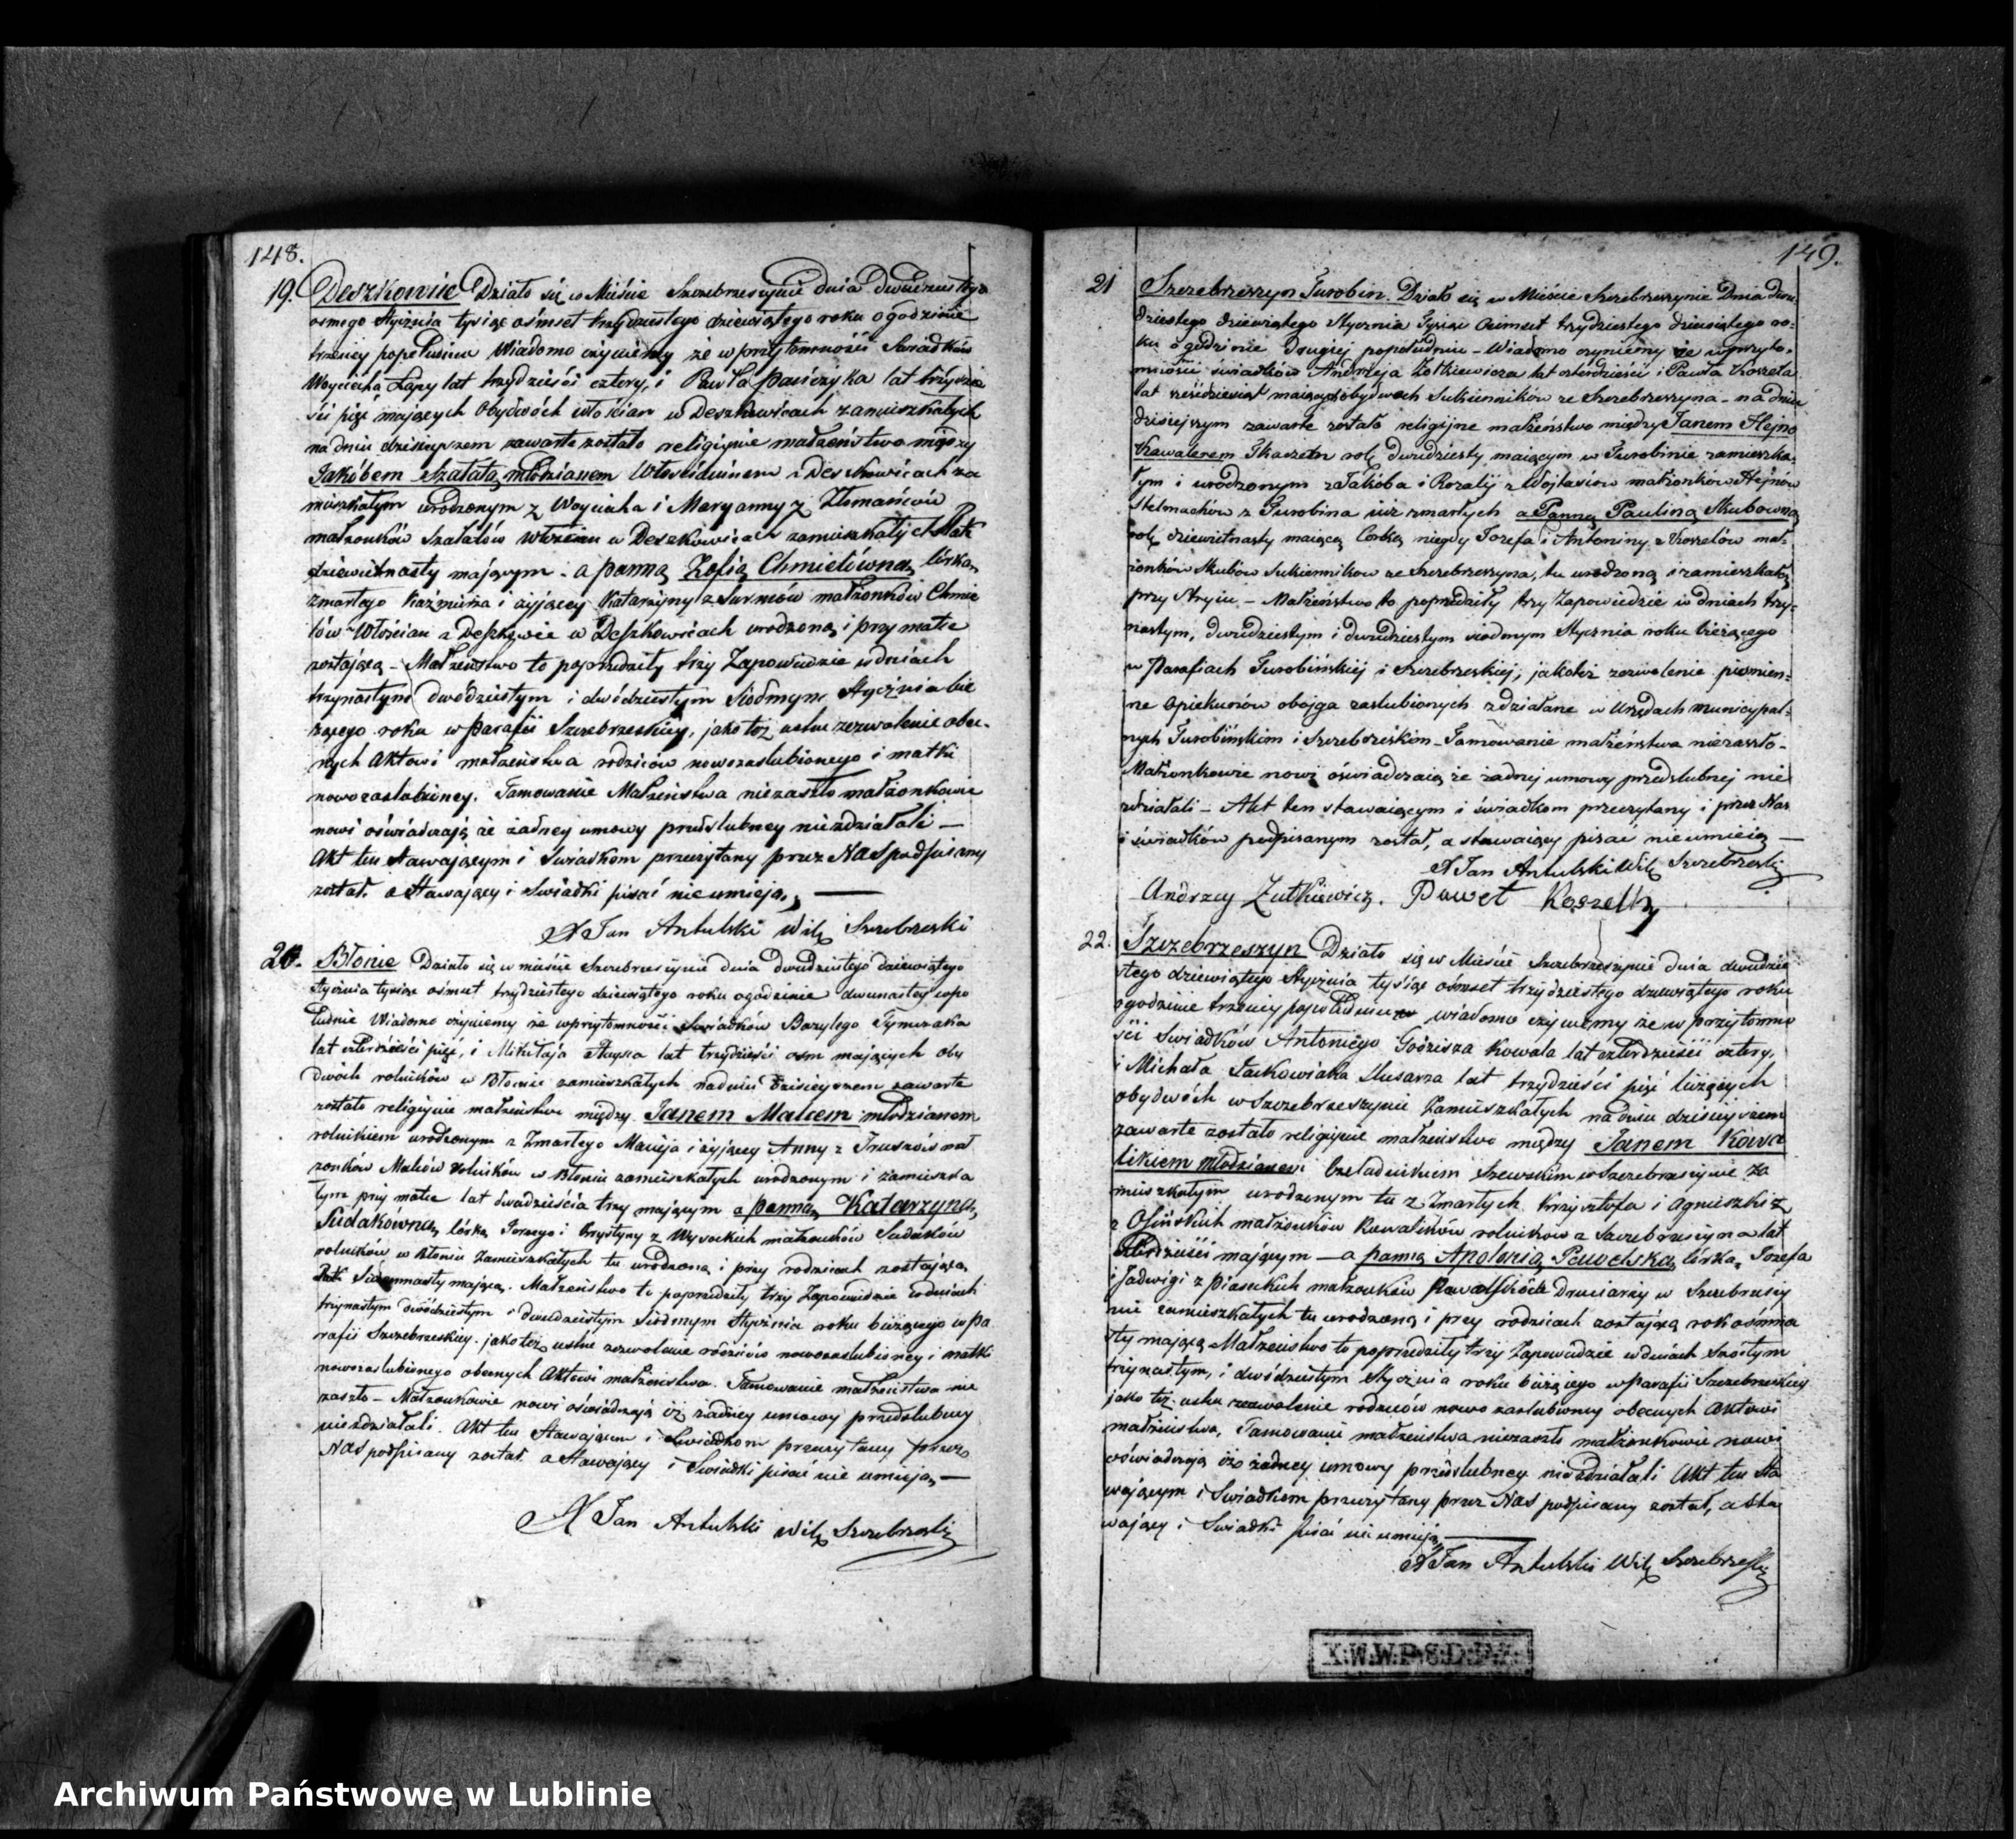 148.
19. Deszkowice Działo się w Mieście Szczebrzeszynie dnia dwudziestego
osmego Stycznia tysiąc ośmset trzydziestego dziewiątego roku o godzinie
trzeciey popołudniu Wiadomo czyniemy że w przytomności Swiadków
Woyciecha Łapy lat trzydzieści cztery, i Pawła Pasiczyka lat trzydzie
ści pięć mających Obydwóch włościan w Deszkowicach zamieszkałych
na dniu dzisieyszem zawarte zostało religiyne małżeństwo między
Jakóbem Szałatą młodzianem Włościaninem z Deszkowicach za
mieszkałym urodzonym z Woyciecha i Maryanny z Złomańców
małżonków Szałatów włościan w Deszkowicach zamieszkałych lat
dziewiętnasty mającym - a panną Zofią Chmielówną, córką
zmarłego Kaźmirza i żyjącey Katarzyny z Surmów małżonków Chmie
lów Włościan z Deszkowic w Deszkowicach urodzoną i przy matce
zostającą - Małżeństwo to poprzedziły trzy Zapowiedzie w dniach
trzynastym dwódziestym i dwódziestym Siódmym Stycznia bie
żącego roku w Parafii Szczebrzeskiey, jako też ustne zezwolenie obec-
nych Aktowi małżeństwa rodziców nowozaslubionego i matki
nowozaslubioney. Tamowanie Małżeństwa niezaszło małżonkowie
nowi oświadczają że żadney umowy przedslubney niezdziałali —
Akt ten stawającym i Swiadkom przeczytany przez Nas podpisany
został. a Stawający i Swiadki pisać nie umieją, —
X Jan Antulski Wik Szczebrzeski
20. Błonie Działo się w mieście Szczebrzeszynie dnia dwudziestego dziewiątego
Stycznia tysiąc ośmset trzydziestego dziewiątego roku o godzinie dwunastey wpo
łudnie Wiadomo czyniemy że w przytomności Swiadków Bazylego Tymczaka
lat czterdzieści pięć, i Mikołaja lat trzydzieści osm mających oby
dwóch rolników w Błoniu zamieszkałych na dniu dzisieyszem zawarte
zostało religiyne małżeństwo między Janem Malcem młodzianem
rolnikiem urodzonym z Zmarłego Macieja i żyjącey Anny z małż
żonków Malców rolników w Błoniu zamieszkałych urodzonym i zamieszka
łym przy matce lat dwadzieścia trzy mającym a panną Katarzyną
Sudakówną córką i Krystyny z Wysockich małżonków Sudaków
rolników w Błoniu Zamieszkałych tu urodzoną i przy rodzicach zostającą
Siedemnasty mającą. Małżeństwo to poprzedziły trzy Zapowiedzie w dniach
trzynastym dwódziestym i dwudziestym siódmym Stycznia roku bieżącego w Pa
rafii Szczebrzeskiey. jako też ustne zezwolenie rodziców nowozaslubioney i matki
nowozaslubionego obecnych Aktowi małżeństwa. Tamowanie małżeństwa nie
zaszło - Małżonkowie nowi oświadczają iż żadney umowy przedslubney
niezdziałali. Akt ten Stawającem i Swiadkom przeczytany przez
Nas podpisany został. a Stawający i Swiadki pisać nie umieją, —
X Jan Antulski Wik Szczebrzeski
149.
21 Szczebrzeszyn Turobin. Działo się w Mieście Szczebrzeszynie Dnia dwu-
dziestego dziewiątego Stycznia Tysiąc Ośmset trzydziestego dziewiątego ro-
ku o godzinie drugiej popołudniu - Wiadomo czyniemy że w przyto-
mności świadków Andrzeja Żółkiewicza lat czterdzieści i Pawła Koszela
lat sześćdziesiąt maiących obydwoch Sukienników ze Szczebrzeszyna - na dniu
dzisiejszym zawarte zostało religijne małżeństwo między Janem Hejno
Kawalerem Tkaczem rok dwudziesty maiącym w Turobinie zamieszka-
łym i urodzonym z Jakóba i Rozalij z Wojtasiów małżonków Hejnów
Stelmachów z Turobina już zmarłych a Panną Pauliną Skubowną
rok dziewiętnasty maiącą Córką niegdy Jozefa i Antoniny z Koszelów mał-
żonków Skubów Sukienników ze Szczebrzeszyna, tu urodzoną i zamieszkałą
przy Stryju - Małżeństwo to poprzedziły trzy Zapowiedzie w dniach trzy-
nastym, dwudziestym i dwudziestym siodmym Stycznia roku bieżącego
w Parafiach Turobińskiej i Szczebrzeskiej; jakoteż zezwolenie piśmien-
ne Opiekunów obojga zaslubionych zdziałane w Urzędach municypal-
nych Turobińskim i Szczebrzeskim - Tamowanie małżeństwa niezaszło -
Małżonkowie nowi oświadczaią że żadnej umowy przedslubnej nie
zdziałali - Akt ten stawaiącym i świadkom przeczytany i przez Nas
i świadków podpisanym został, a stawaiący pisać nieumieią —
X Jan Antulski Wik Szczebrzeski
Andrzey Zułkiewicz. Paweł Koszella
22. Szczebrzeszyn Działo się w Mieście Szczebrzeszynie dnia dwudzie
stego dziewiątego Stycznia tysiąc ośmset trzydziestego dziewiątego roku
o godzinie trzeciey popołudniu wiadomo czyniemy że w przytomno
ści Swiadków Antoniego Godzisza Kowala lat czterdzieści cztery,
i Michała Jackowiaka Slusarza lat trzydzieści pięć liczących
obydwóch w Szczebrzeszynie Zamieszkałych na dniu dzisieyszem
zawarte zostało religiyne małżeństwo między Janem Kowa
likiem młodzianem Czeladnikiem Szewskim w Szczebrzeszynie Za
mieszkałym urodzonym tu z Zmarłych Krzysztofa i Agnieszki
z Osińskich małżonków Kowalików rolników z Szczebrzeszyna lat
czterdzieści mającym — a panną Apolonią Pawelską córką Jozefa
i Jadwigi z Piaseckich małżonków Pawelskich Druciarzy w Szczebrzeszy
nie zamieszkałych tu urodzoną i przy rodzicach zostającą rok ośmna
sty mającą Małżeństwo to poprzedziły trzy Zapowiedzie w dniach szostym
trzynastym, i dwódziestym Stycznia roku bieżącego w Parafii Szczebrzeskiey
jako też ustne zezwolenie rodziców nowo zaslubioney obecnych Aktowi
małżeństwa, Tamowanie małżeństwa niezaszło małżonkowie nowi
oświadczają iż żadney umowy przedslubney niezdziałali Akt ten Sta
wającym i Swiadkom przeczytany przez Nas podpisany został, a Sta
wający i Swiadki pisać nie umieją —
X Jan Antulski Wik Szczebrzeski
X.W.W.P.S.D.P.Z.
Archiwum Państwowe w Lublinie